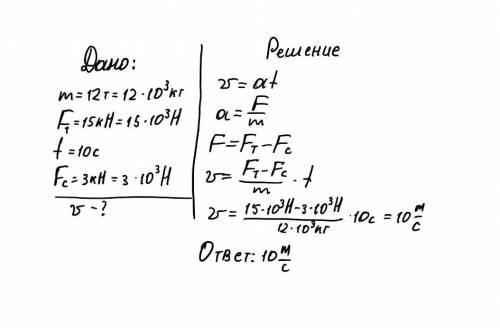 Дано:
m=12т=12·10³кг
Fт=15кН=15·10³Н
t=10с
Fс=3кН=3·10³Н
v-?
Решение
v=at
a=F/m
F=Fт-Fс
v=(Fт-Fс)/m·t
v=(15·10³Н-3·10³Н)/(12·10³кг)·10с=10м/с
Ответ: 10м/с